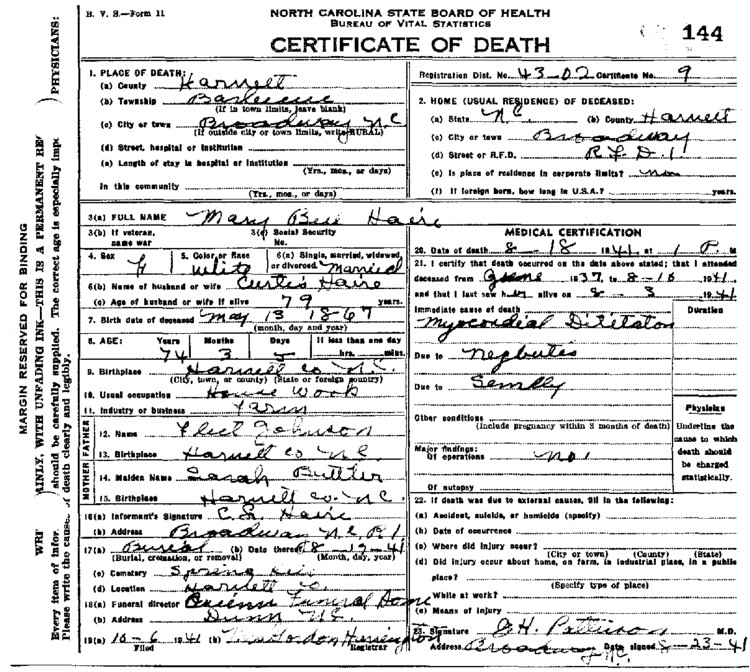 B. V. S.—Form 11
NORTH CAROLINA STATE BOARD OF HEALTH
BUREAU OF VITAL STATISTICS
CERTIFICATE OF DEATH
144
MARGIN RESERVED FOR BINDING
WRI
AINLY, WITH UNFADING INK—THIS IS A PERMANENT RE
Every item of infor
should be carefully supplied. The correct age is especially impo
) PHYSICIANS:
Please write the cause
of death clearly and legibly.
1. PLACE OF DEATH:
(a) County Harnett
(b) Township Barbecue
(If in town limits, leave blank)
(c) City or town Broadway N.C
(If outside city or town limits, write RURAL)
(d) Street, hospital or institution
(e) Length of stay in hospital or institution
(Yrs., mos., or days)
In this community
(Yrs., mos., or days)
Registration Dist. No. 43-02 Certificate No. 9
2. HOME (USUAL RESIDENCE) OF DECEASED:
(a) State N.C. (b) County Harnett
(c) City or town Broadway
(d) Street or R.F.D. R.F.D. 1
(e) Is place of residence in corporate limits? no
(f) If foreign born, how long in U.S.A.? years.
3(a) FULL NAME Mary Bell Haire
3(b) If veteran, name war
3(c) Social Security No.
4. Sex F
5. Color or Race White
6(a) Single, married, widowed, or divorced Married
6(b) Name of husband or wife Curtis Haire
(c) Age of husband or wife if alive 79 years.
7. Birth date of deceased May 13 1867
(month, day and year)
8. AGE: Years Months Days If less than one day
74 3 5 hrs. mins.
9. Birthplace Harnett Co N.C.
(City, town, or county) (State or foreign country)
10. Usual occupation House Work
11. Industry or business Farm
FATHER
12. Name Johnson
13. Birthplace Harnett Co N.C.
MOTHER
14. Maiden Name Sarah Buttler
15. Birthplace Harnett Co. N.C.
16(a) Informant's Signature Haire
(b) Address Broadway N.C. R1
17(a) Burial (b) Date thereof 8-19-41
(Burial, cremation, or removal) (Month, day, year)
(c) Cemetery Spring Hill
(d) Location Harnett Co.
18(a) Funeral director Funeral Home
(b) Address Dunn N.C.
19(a) 10-6 1941 (b)
Filed Registrar
MEDICAL CERTIFICATION
20. Date of death 8-18 1941, at 1 P. M.
21. I certify that death occurred on the date above stated; that I attended
deceased from June 1937, to 8-18 1941.
and that I last saw her alive on 8-3 1941
Immediate cause of death Duration
Myocordial Diletaton
Due to
Due to
Other conditions
(Include pregnancy within 3 months of death)
Major findings:
Of operations no.
Of autopsy
Physician
Underline the
cause to which
death should
be charged
statistically.
22. If death was due to external causes, fill in the following:
(a) Accident, suicide, or homicide (specify)
(b) Date of occurrence
(c) Where did injury occur?
(City or town) (County) (State)
(d) Did injury occur about home, on farm, in industrial place, in a public
place?
(Specify type of place)
While at work?
(e) Means of injury
23. Signature M.D.
Address Broadway N.C. Date signed 8-23-41